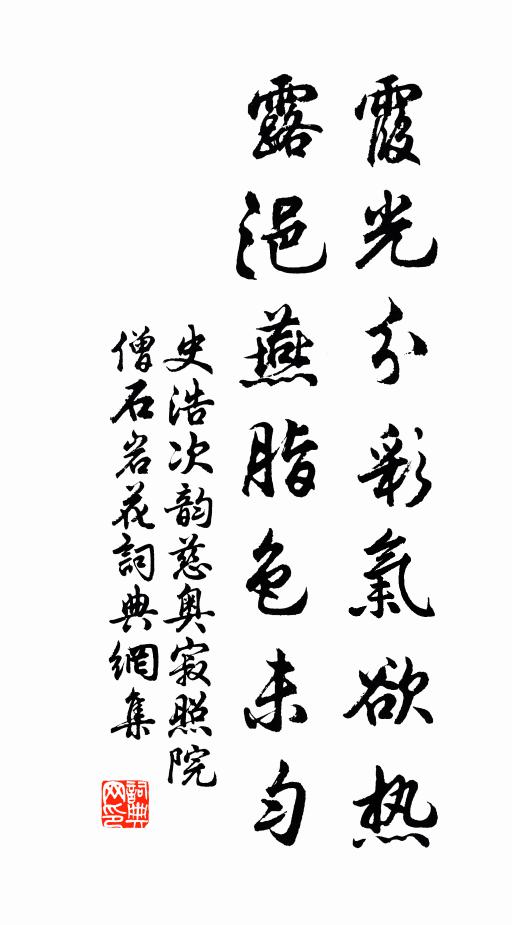 霞光分彩氣欲热
露浥燕脂色未匀
史浩次韵慈奥寂照院
僧石岩花詞典網集
詞典网印